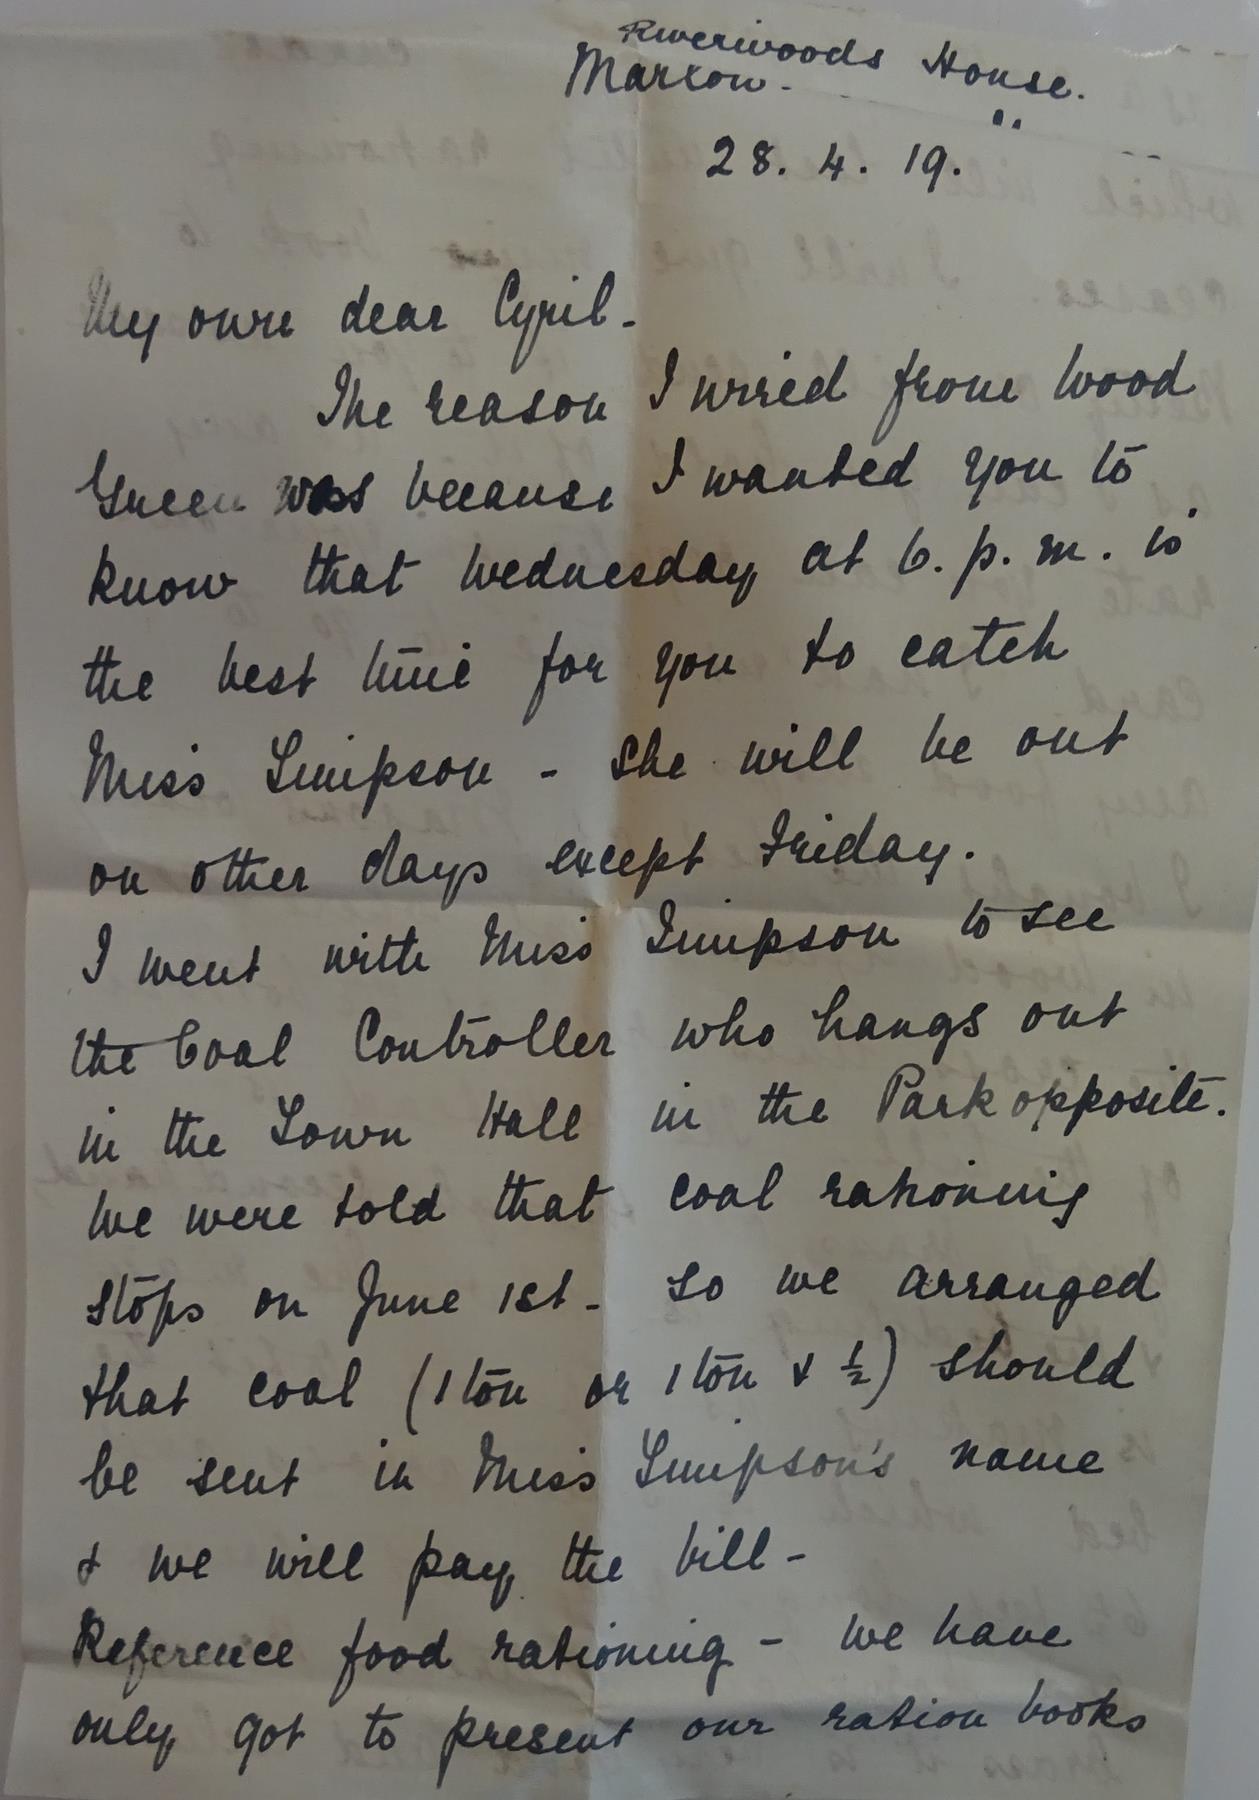 Riverwoods House.
Marlow.
28. 4. 19.
My own dear Cyril -
The reason I wired from Wood
Green was because I wanted you to
know that Wednesday at 6. p. m. is
the best time for you to catch
Miss Simpson - She will be out
on other days except Friday.
I went with Miss Simpson to see
the Coal Controller who hangs out
in the Town Hall in the Park opposite.
We were told that coal rationing
stops on June 1st - so we arranged
that coal (1 ton or 1 ton & ½) should
be sent in Miss Simpson's name
& we will pay the bill -
Reference food rationing - we have
only got to present our ration books